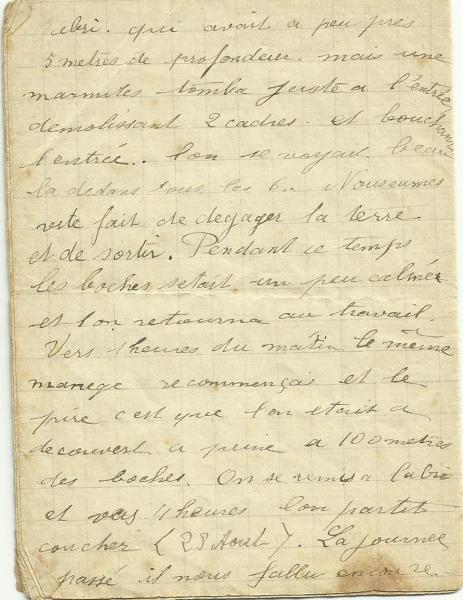 abri. qui avait a peu pres
5 metres de profondeur. mais une
marmites tomba juste a l'entrée
demolissant 2 cadres. et bouchant
l'entrée.. l'on se voyait beau
la dedans tous les 6.. Nouseumes
vite fait de degager la terre
et de sortir. Pendant ce temps
les boches setait un peu calmér
et l'on retourna au travail.
Vers 1 heures du matin le même
manege recommençais et le
pire c'est que l'on etait a
decouvert a peine a 100 metres
des boches. On se remis a labri
et vers 4 heures l'on partit
coucher (23 Aout). La journee
passé il nous fallu encore.-